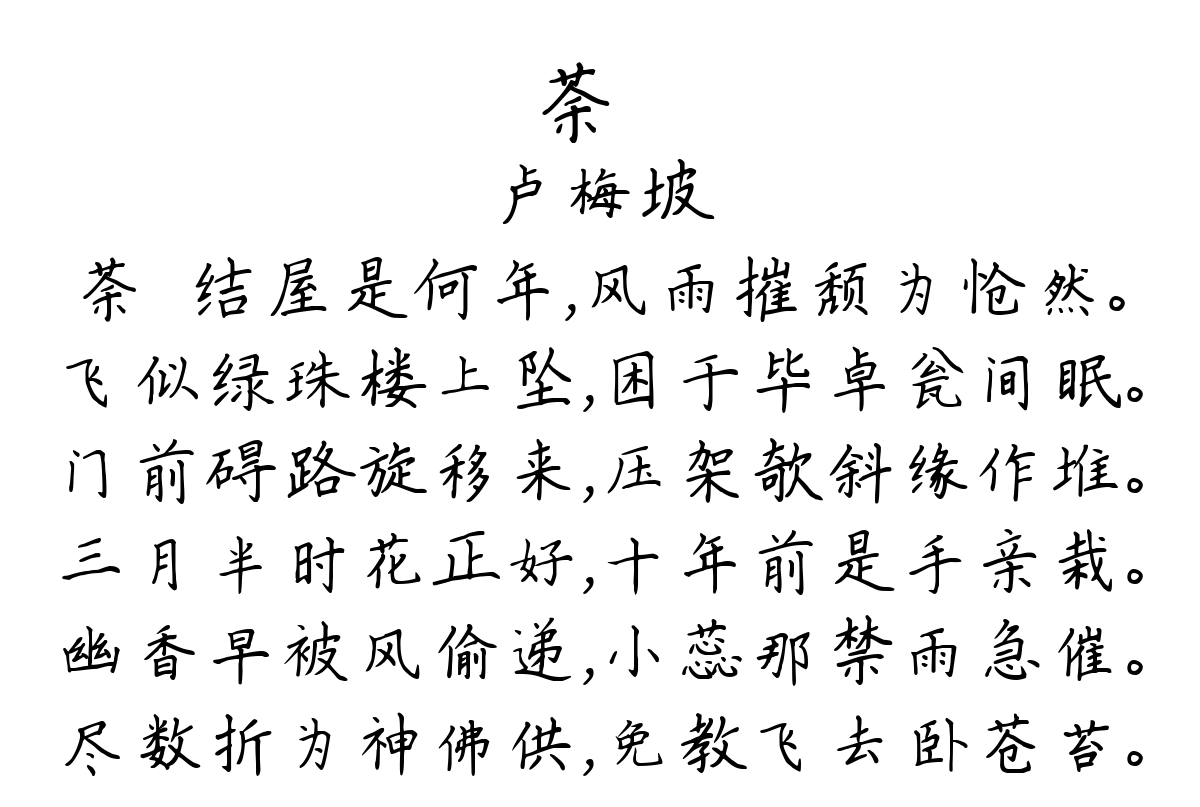 荼
卢梅坡
荼 结屋是何年,风雨摧颓为怆然。
飞似绿珠楼上坠,困于毕卓瓮间眠。
门前碍路旋移来,压架欹斜缘作堆。
三月半时花正好,十年前是手亲栽。
幽香早被风偷递,小蕊那禁雨急催。
尽数折为神佛供,免教飞去卧苍苔。